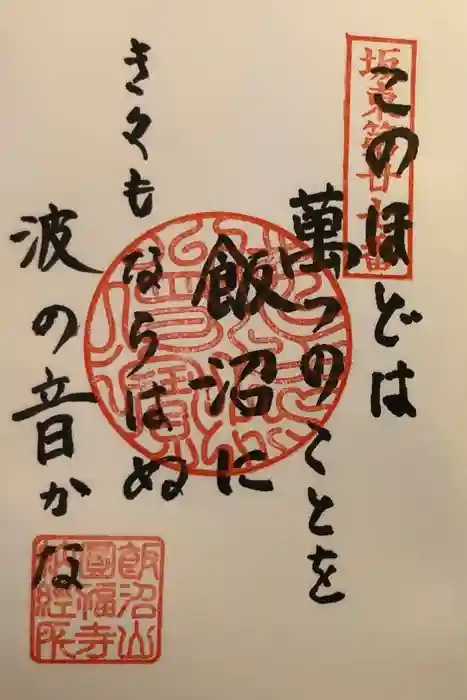 坂東第廿七番
このほどは
萬つのことを
飯沼に
きくもならはぬ
波の音かな
飯沼山
圓福寺
納経所